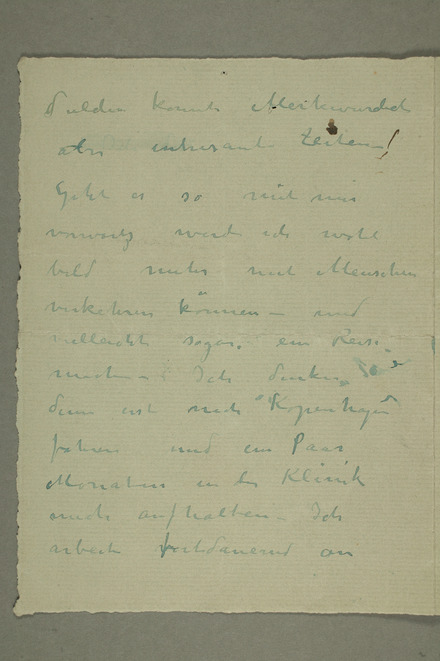 könnte Merkwürdich
aber interssante Zeiten!
Geht es so mit mir
vorwärts werde ich wohl
bald mehr mit Menschen
verkehren können – und
vielleicht sogar ein Reise
machen – Ich denke
dann erst nach Kopenhagen
fahren und ein Paar
Monaten in der Klinik
mich aufhalten – Ich
arbeite fortdauernd an